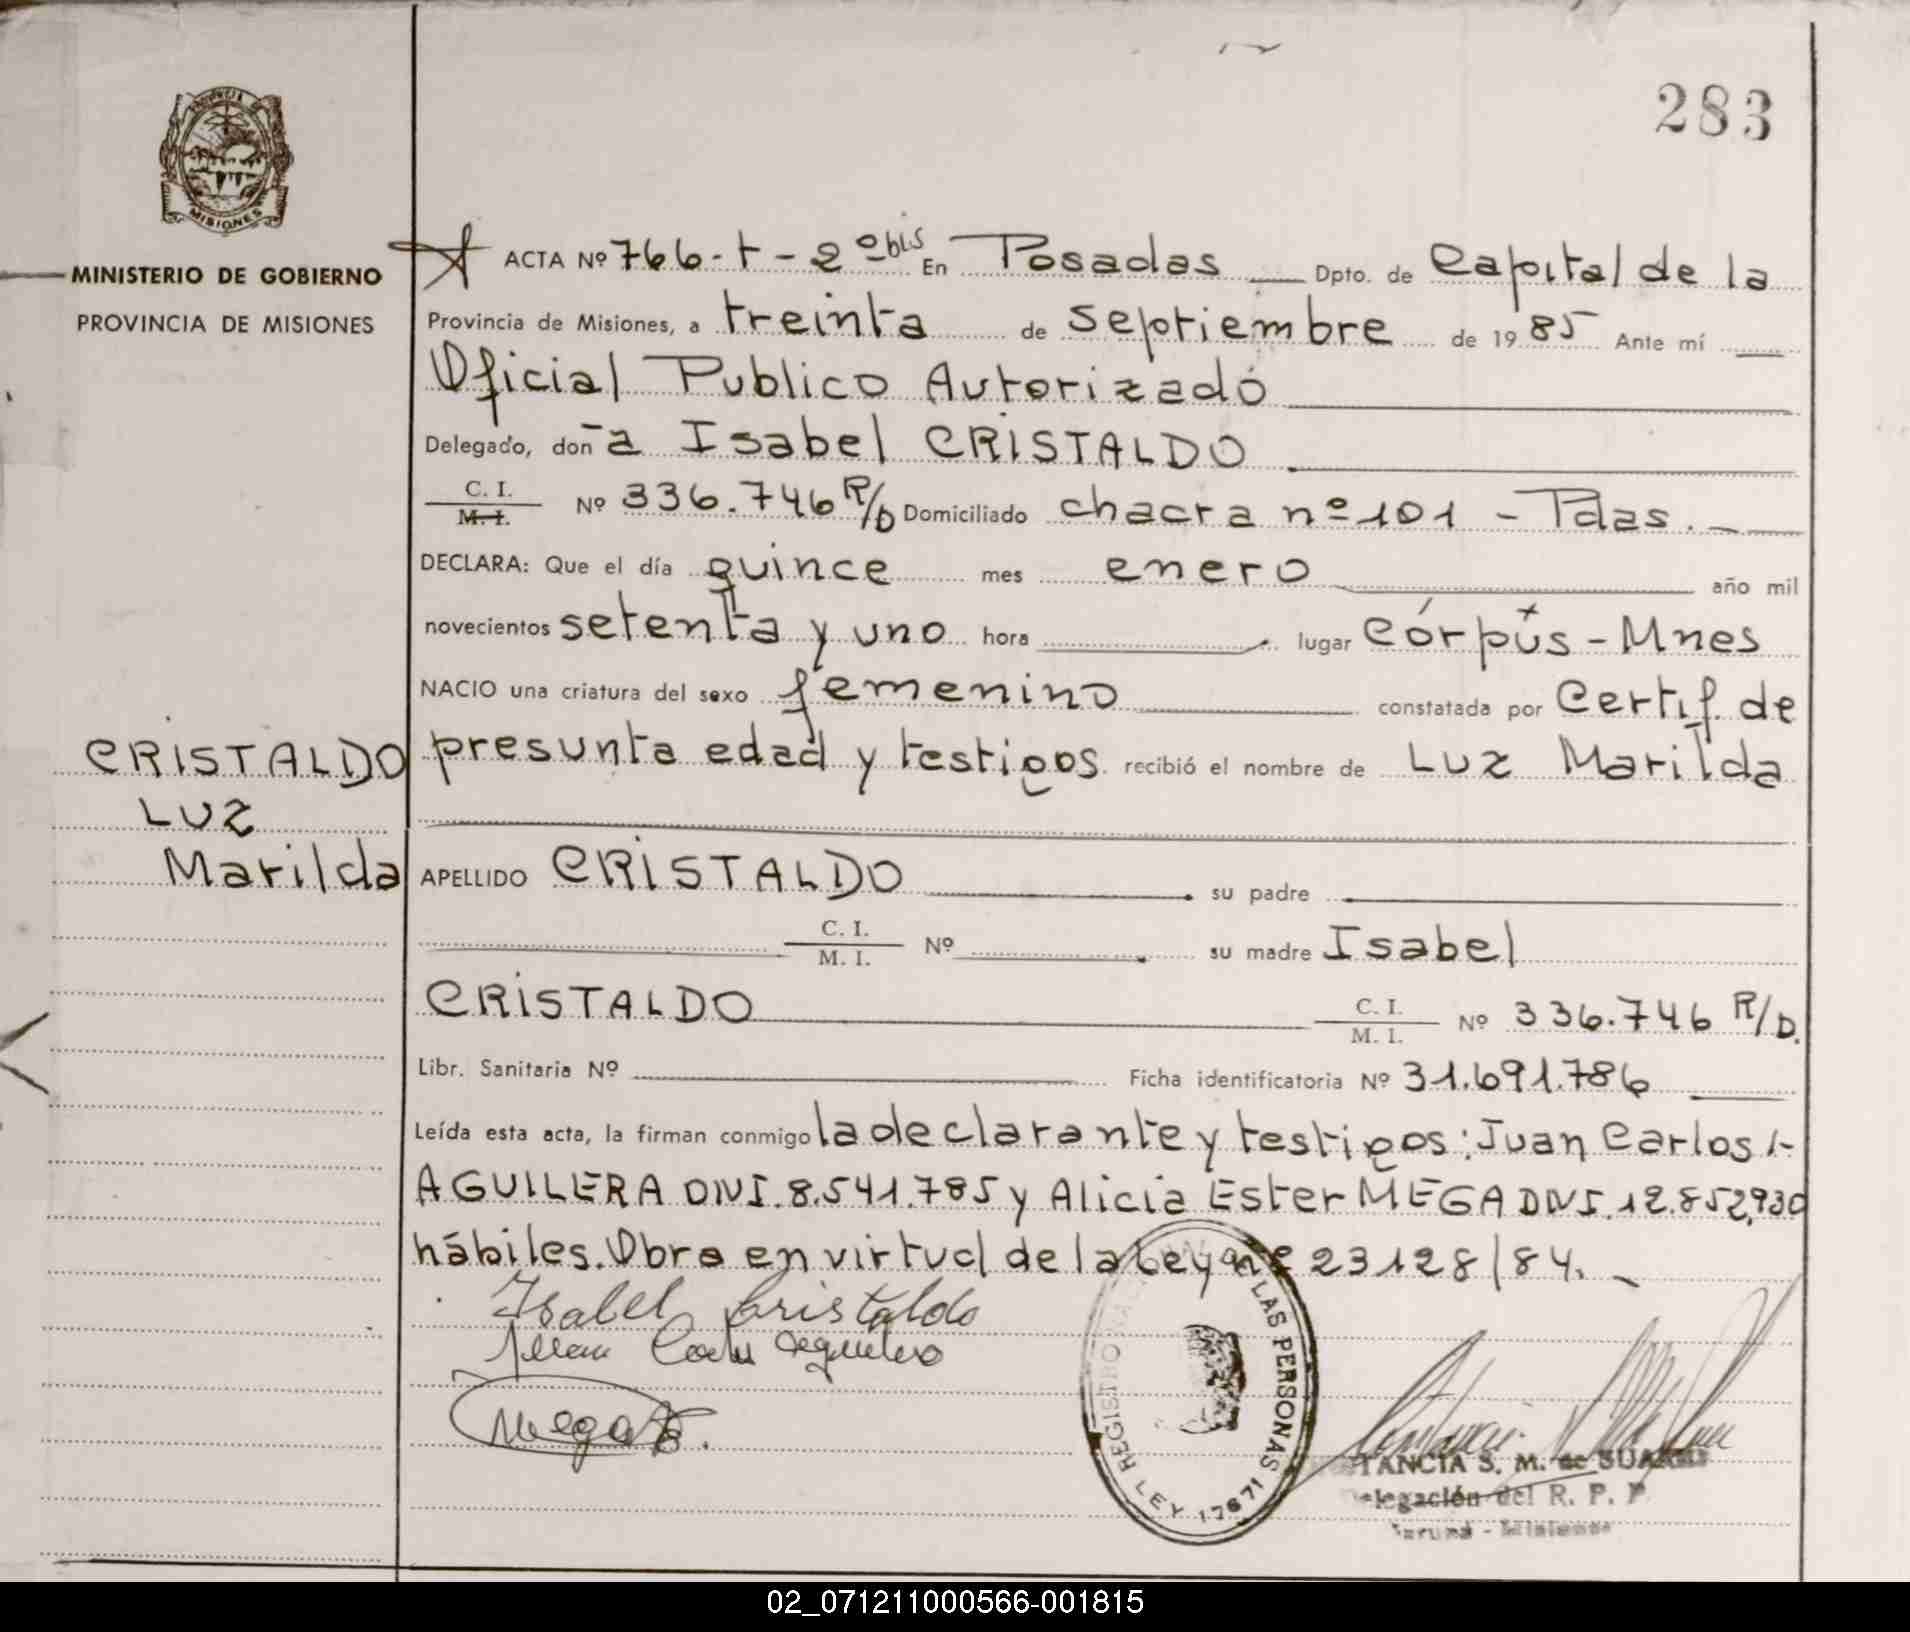 283
PROVINCIA DE
MISIONES
MINISTERIO DE GOBIERNO
PROVINCIA DE MISIONES
ACTA Nº 766-t-2º bis En Posadas Dpto. de Capital de la
Provincia de Misiones, a treinta de septiembre de 1985 Ante mí
Oficial Publico Autorizadó
Delegado, doña Isabel CRISTALDO
C. I.
M. I. Nº 336.746 R/D Domiciliado chacra nº 101 - Pdas.
DECLARA: Que el día quince mes enero año mil
novecientos setenta y uno hora lugar Córpus - Mnes
NACIO una criatura del sexo femenino constatada por Certif. de
presunta edad y testigos recibió el nombre de Luz Marilda
CRISTALDO
Luz
Marilda
APELLIDO CRISTALDO su padre
C. I.
M. I. Nº su madre Isabel
CRISTALDO C. I.
M. I. Nº 336.746 R/D.
Libr. Sanitaria Nº Ficha identificatoria Nº 31.691.786
Leída esta acta, la firman conmigo la declarante y testigos: Juan Carlos
AGUILERA DNI. 8.541.785 y Alicia Ester MEGA DNI. 12.852,930
hábiles. Obra en virtud de la Ley nº 23128/84.
Isabel Cristaldo
Juan Carlos Aguilera
Mega E.
REGISTRO LAS PERSONAS
LEY 17671
TANCIA S. M. de SUAREZ
elegación del R. P. P.
02_071211000566-001815